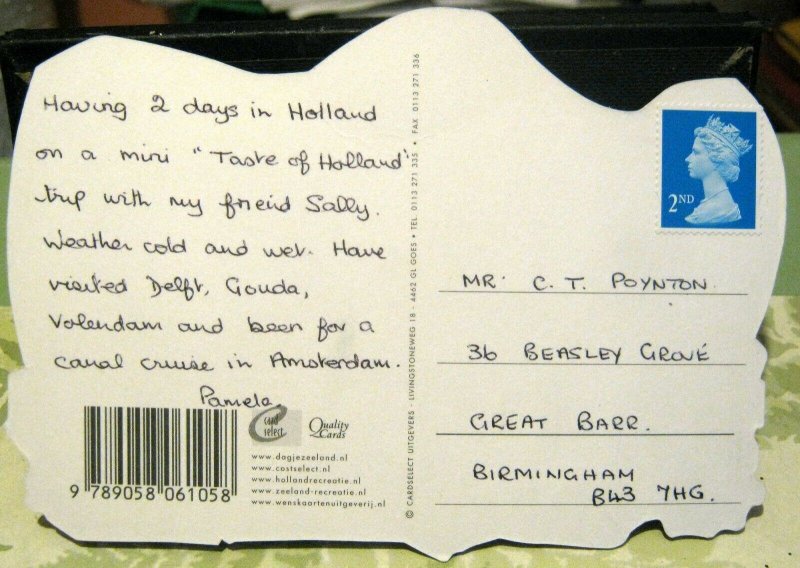 Having 2 days in Holland
on a mini "Taste of Holland"
trip with my friend Sally.
Weather cold and wet. Have
visited Delft, Gouda,
Volendam and been for a
canal cruise in Amsterdam.
Pamela.
9 789058 061058
card
select
Quality
Cards
www.dagjezeeland.nl
www.costselect.nl
www.hollandrecreatie.nl
www.zeeland-recreatie.nl
www.wenskaartenuitgeverij.nl
© CARDSELECT UITGEVERS - LIVINGSTONEWEG 18 - 4462 GL GOES • TEL 0113 271 335 • FAX 0113 271 336
2ND
MR. C. T. POYNTON.
36 BEASLEY GROVE
GREAT BARR.
BIRMINGHAM
B43 7HG.